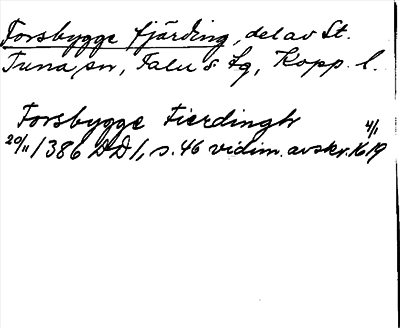 Forsbygge fjärding, del av St.
Tuna sn, Falu s fg, Kopp. l.
Forsbygge Fierdingh
20/11 1386 DD 1, s. 46 vidim. avskr. 4/1 1619